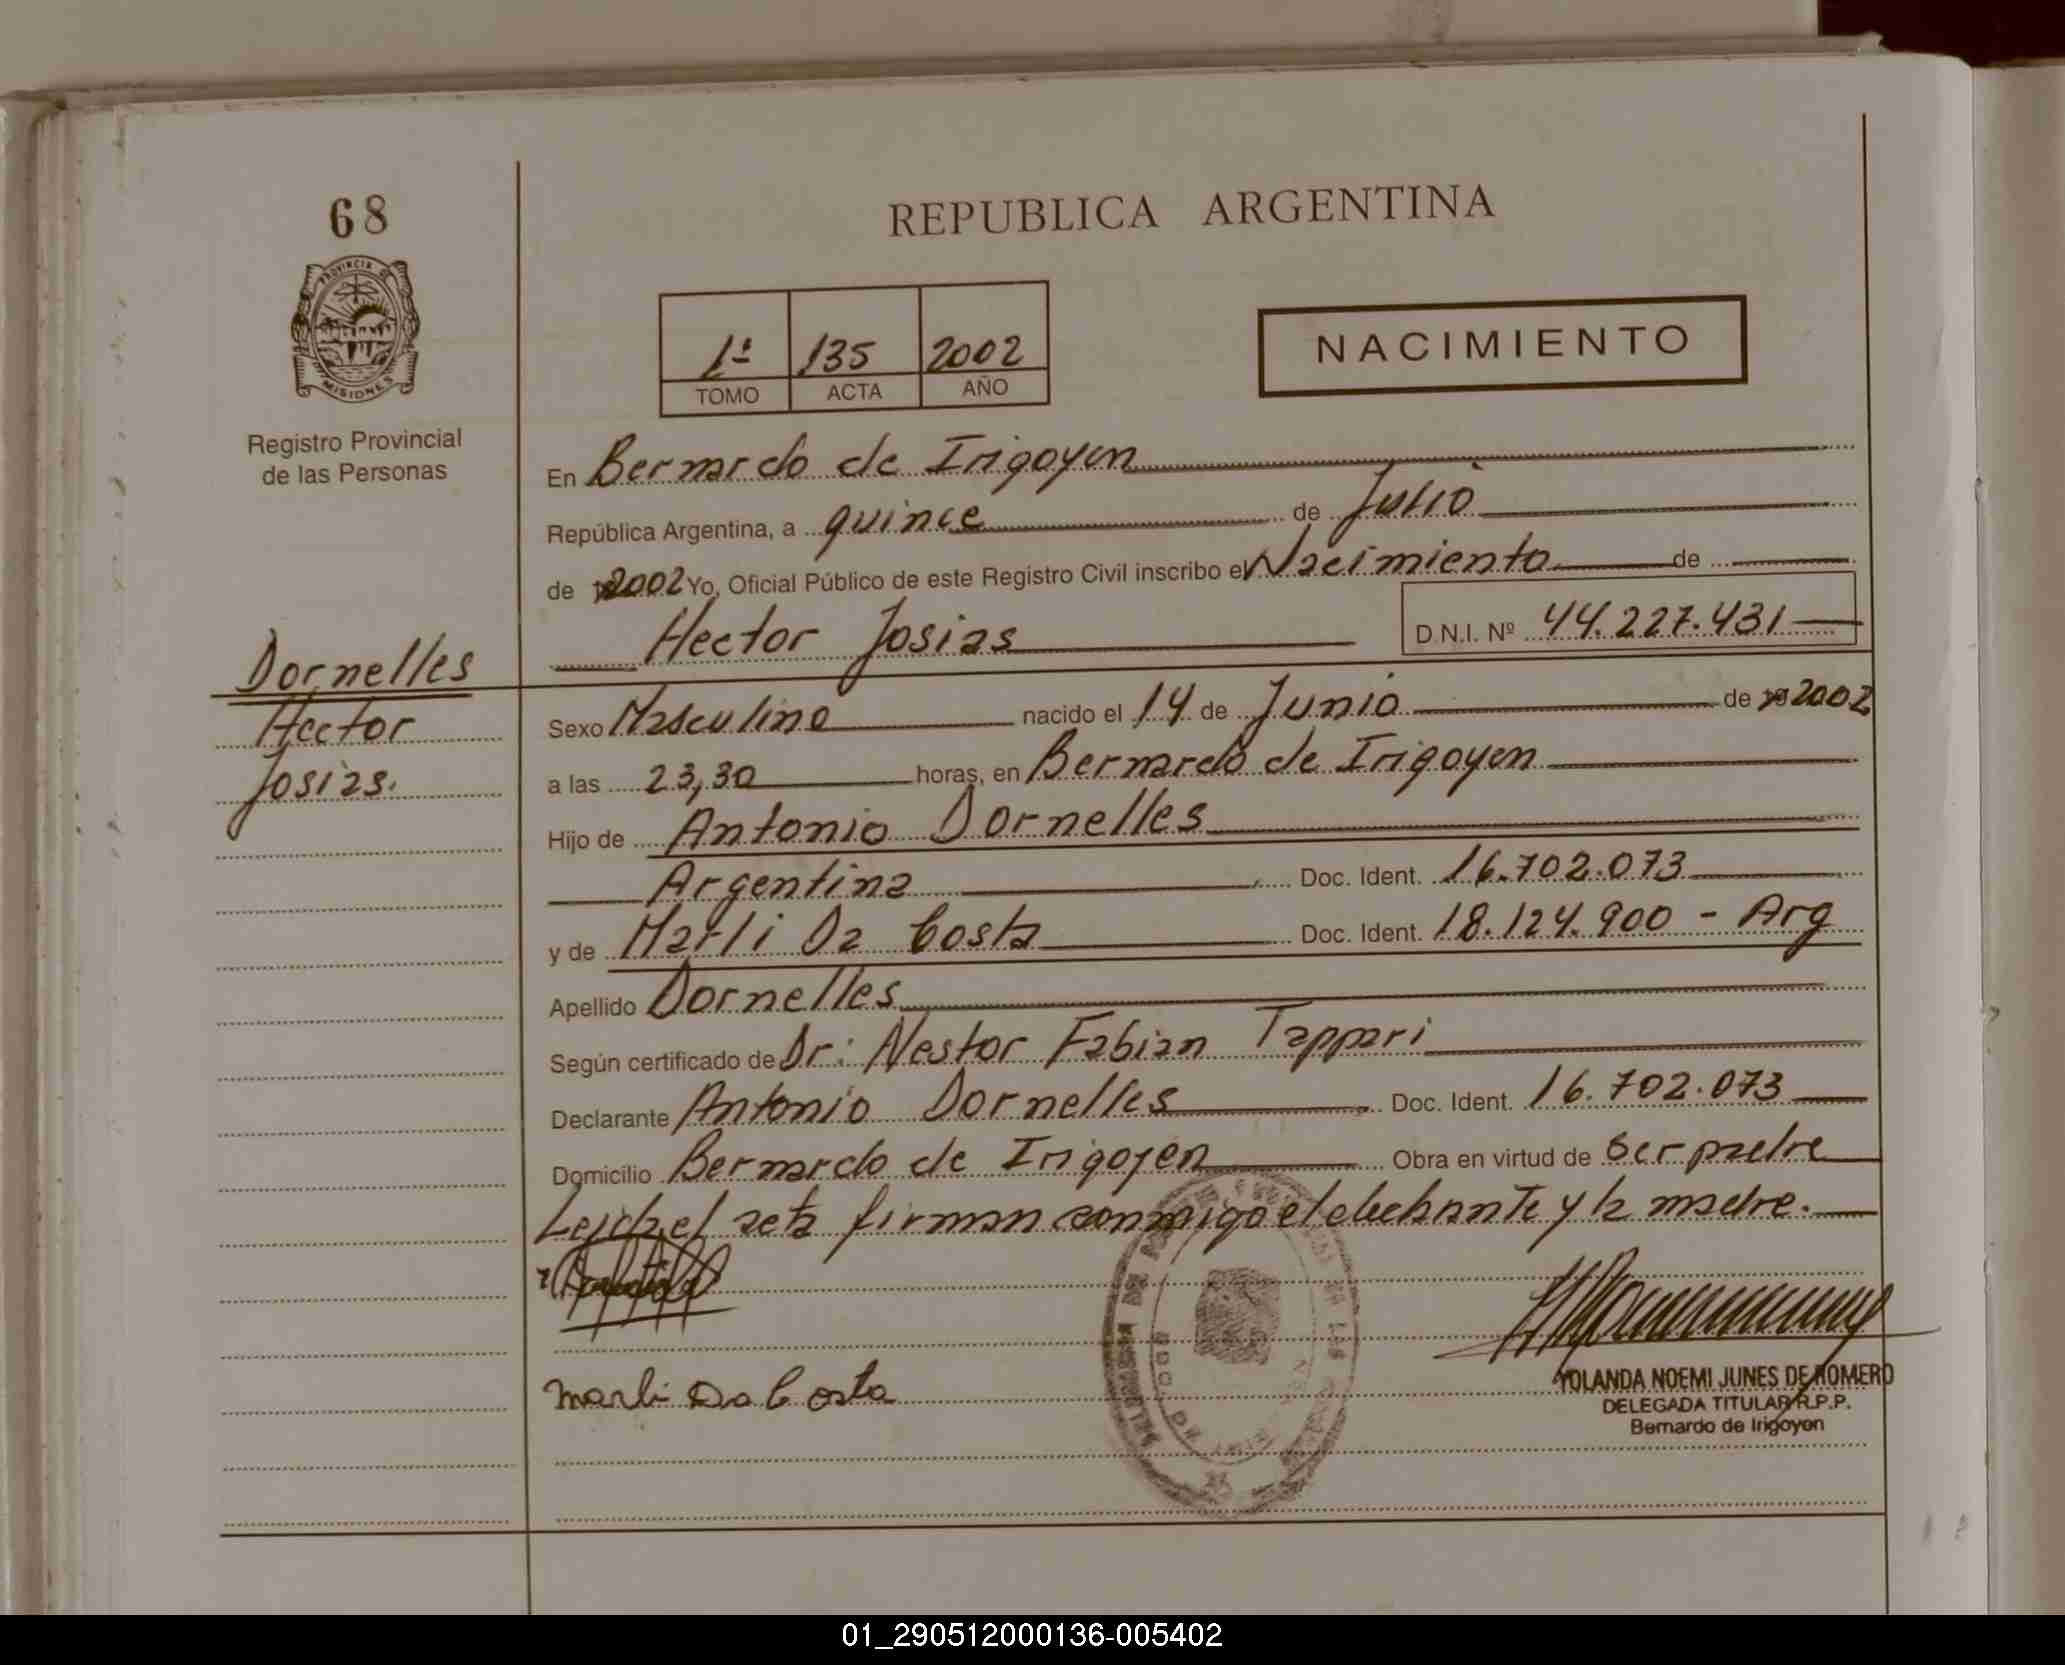 68
PROVINCIA DE
MISIONES
Registro Provincial
de las Personas
REPUBLICA ARGENTINA
1ª 135 2002
TOMO ACTA AÑO
NACIMIENTO
En Bernardo de Irigoyen
República Argentina, a quince de Julio
de 2002 Yo, Oficial Público de este Registro Civil inscribo el Nacimiento de
Hector Josias D.N.I. Nº 44.227.431
Dornelles
Hector
Josias.
Sexo Masculino nacido el 14 de Junio de 2002
a las 23,30 horas, en Bernardo de Irigoyen
Hijo de Antonio Dornelles
Argentina Doc. Ident. 16.702.073
y de Marli Da Costa Doc. Ident. 18.124.900 - Arg
Apellido Dornelles
Según certificado de Dr: Nestor Fabian Tappari
Declarante Antonio Dornelles Doc. Ident. 16.702.073
Domicilio Bernardo de Irigoyen Obra en virtud de ser padre
Leida el acta firman conmigo el declarante y la madre.
Marli Da Costa
YOLANDA NOEMI JUNES DE ROMERO
DELEGADA TITULAR R.P.P.
Bernardo de Irigoyen
01_290512000136-005402